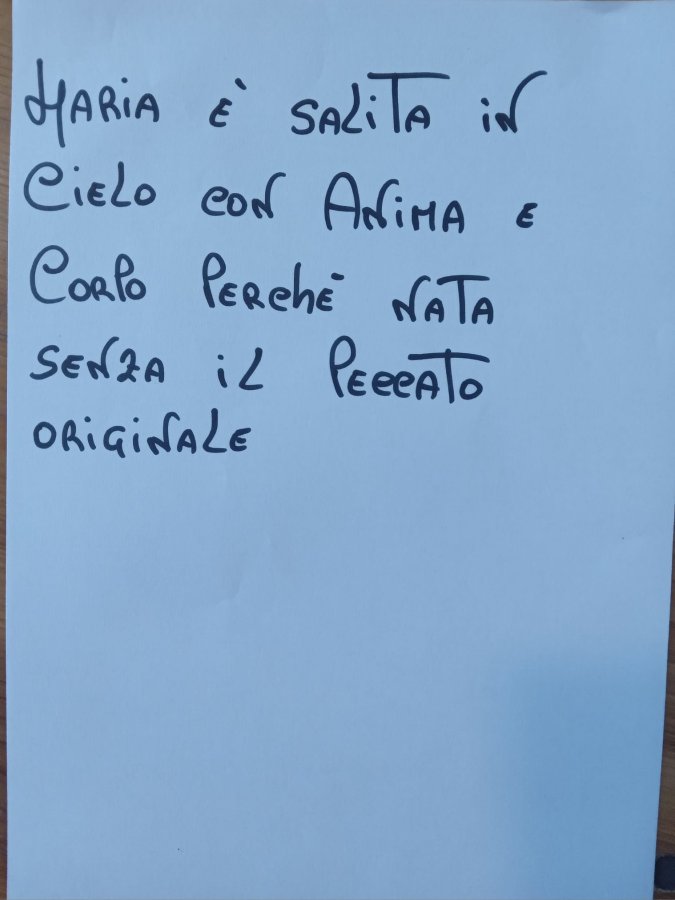 MARIA È SALITA IN
CIELO CON ANIMA E
CORPO PERCHÉ NATA
SENZA IL PECCATO
ORIGINALE